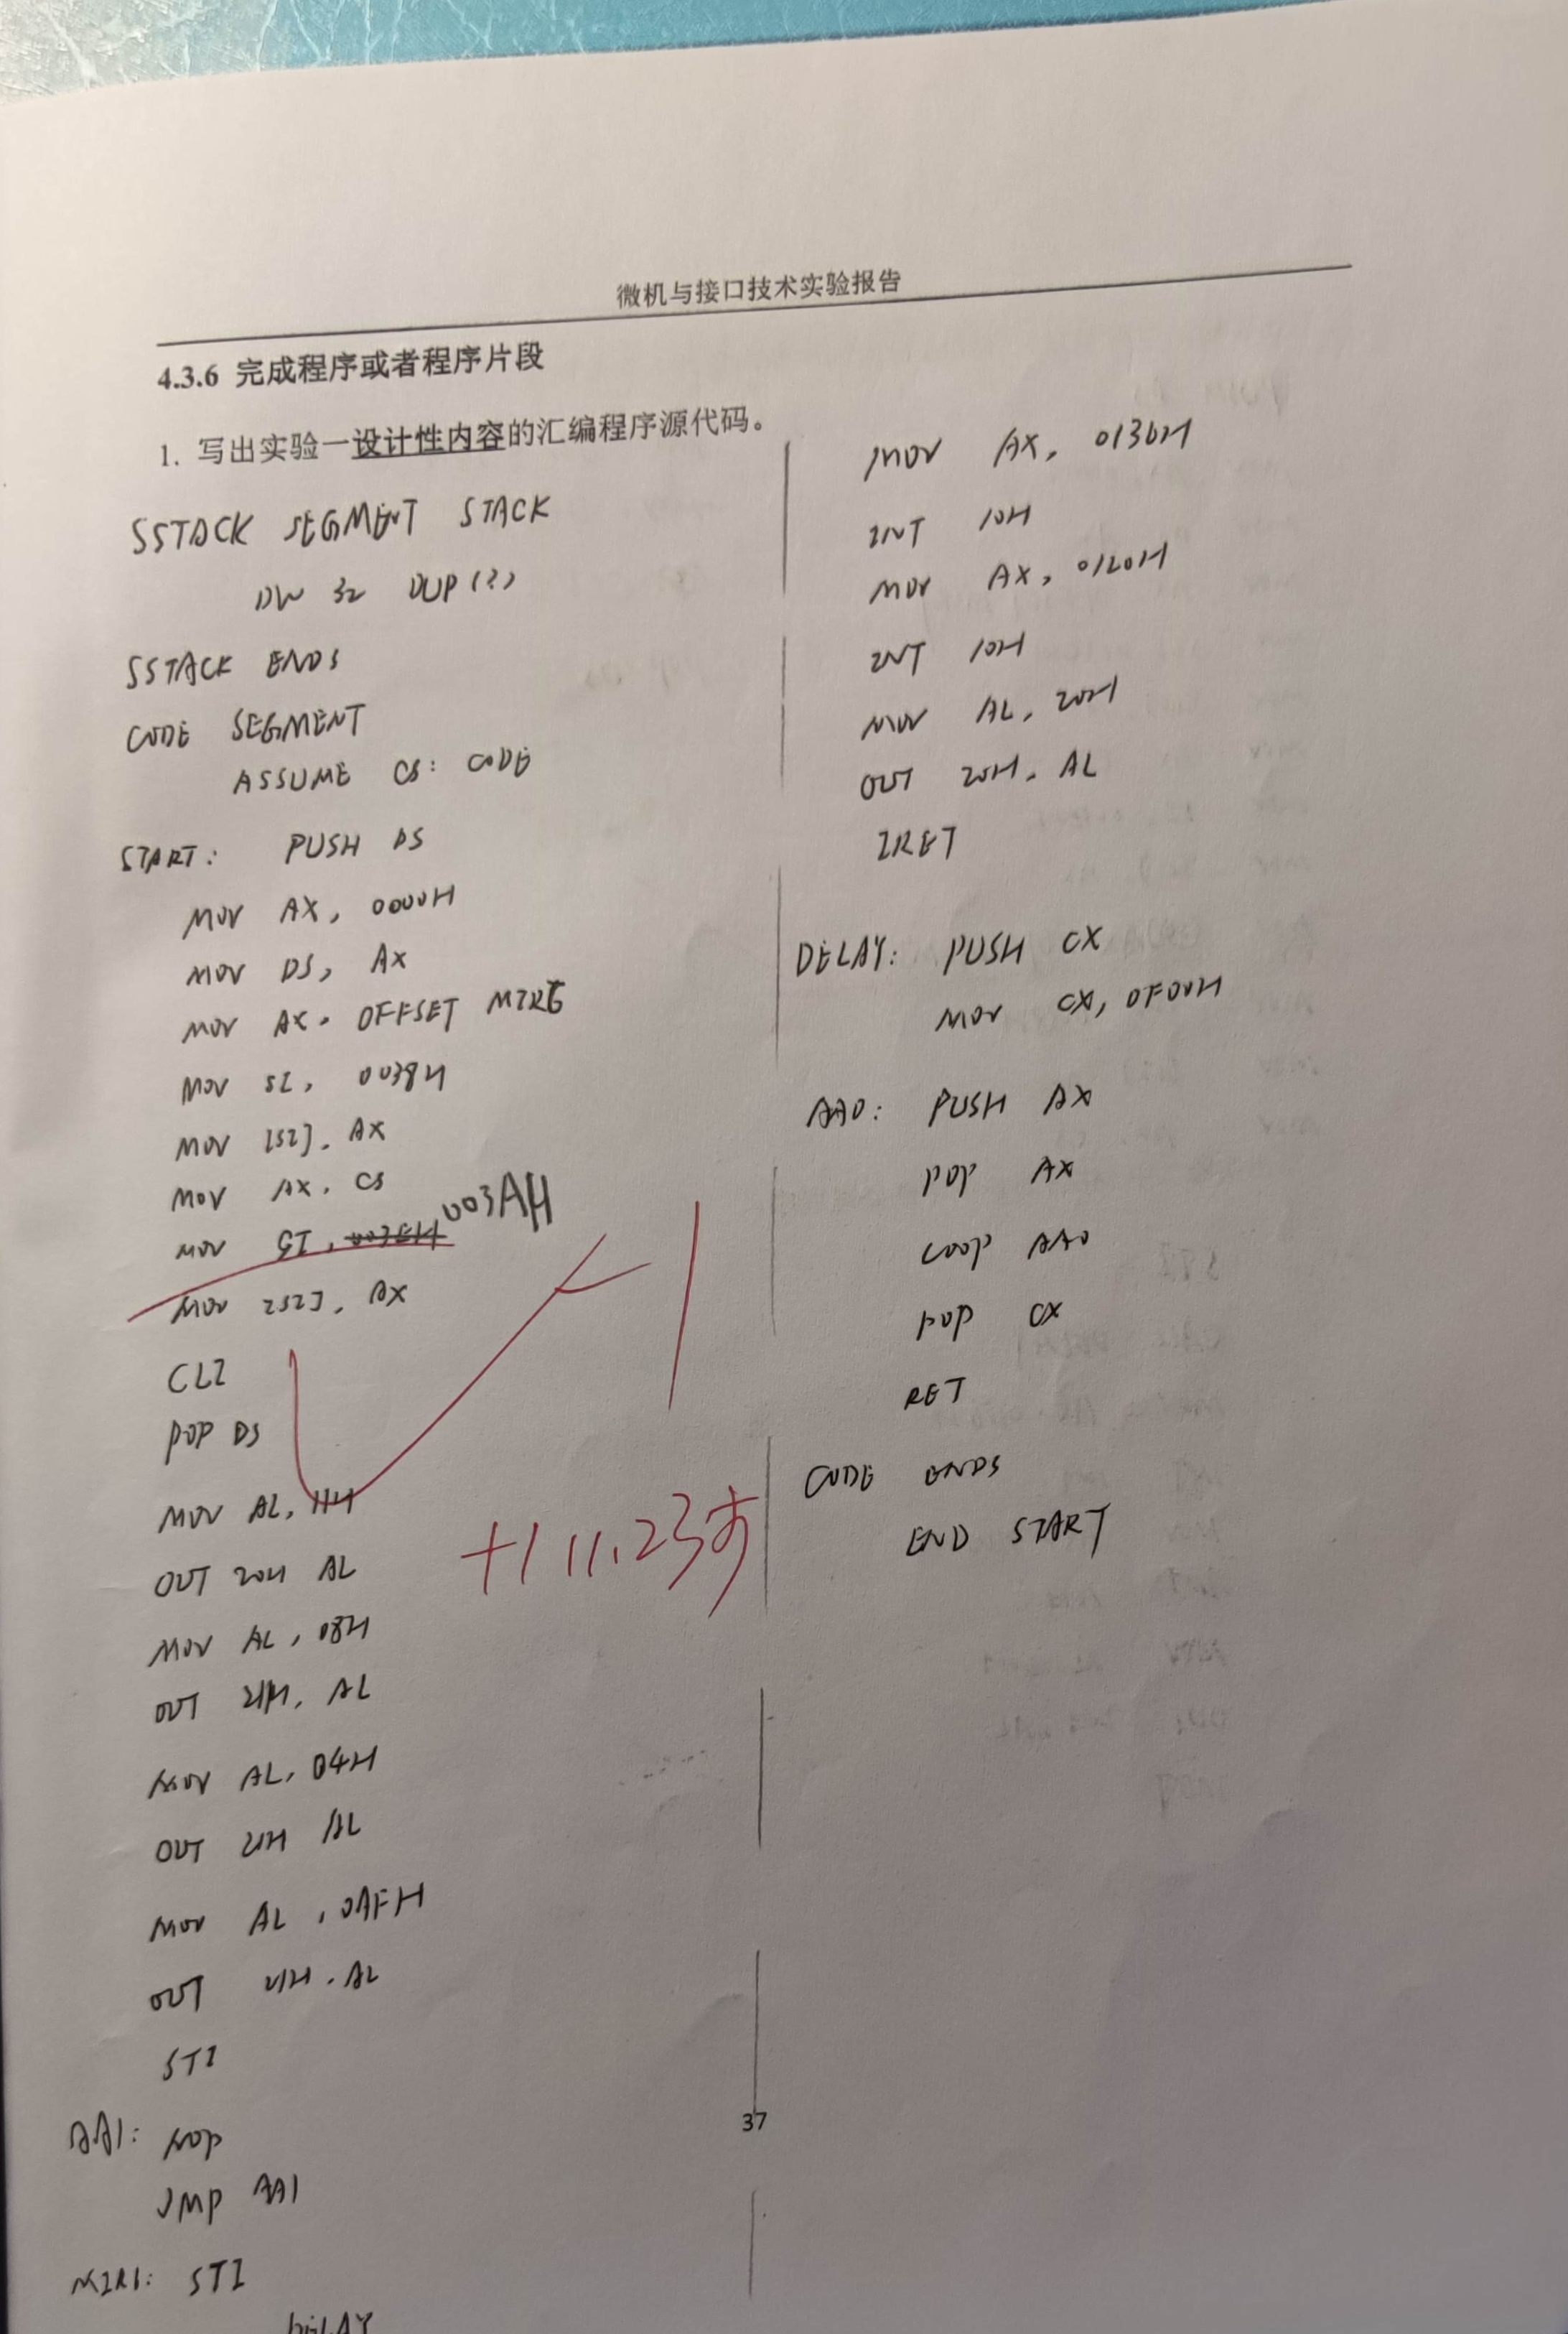 微机与接口技术实验报告
4.3.6 完成程序或者程序片段
1. 写出实验一设计性内容的汇编程序源代码。
SSTACK SEGMENT STACK
DW 32 DUP(?)
SSTACK ENDS
CODE SEGMENT
ASSUME CS: CODE
START: PUSH DS
MOV AX, 0000H
MOV DS, AX
MOV AX, OFFSET
MOV SI, 0038H
MOV [SI], AX
MOV AX, CS
MOV SI, 003AH
MOV [SI], AX
CLI
POP DS
MOV AL, 11H
OUT 20H AL
MOV AL, 08H
OUT 21H, AL
MOV AL, 04H
OUT 21H AL
MOV AL, 0AFH
OUT 21H, AL
STI
AA1: NOP
JMP AA1
STI
DELAY
MOV AX, 0136H
INT 10H
MOV AX, 0120H
INT 10H
MOV AL, 20H
OUT 20H, AL
IRET
DELAY: PUSH CX
MOV CX, 0F00H
AA0: PUSH AX
POP AX
LOOP AA0
POP CX
RET
CODE ENDS
END START
37